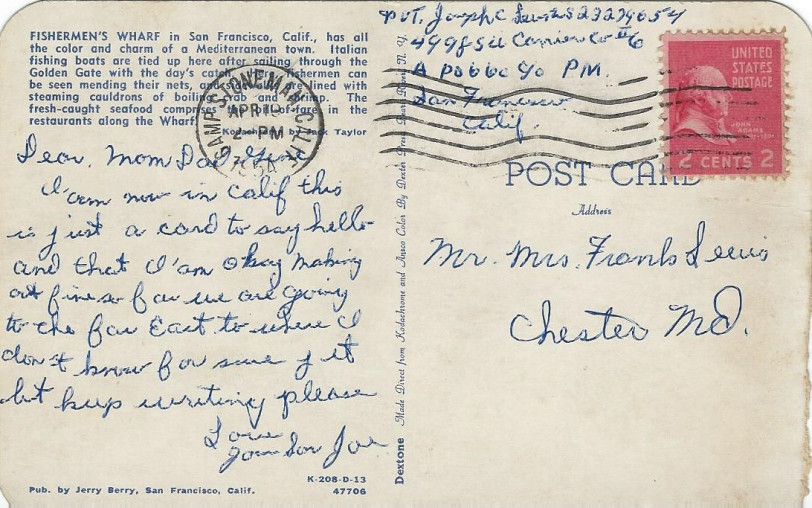 FISHERMEN'S WHARF in San Francisco, Calif., has all
the color and charm of a Mediterranean town. Italian
fishing boats are tied up here after sailing through the
Golden Gate with the day's catch. Here fishermen can
be seen mending their nets, and are lined with
steaming cauldrons of boiling crab and shrimp. The
fresh-caught seafood comprises the bill-of-fare in the
restaurants along the Wharf.
Kodachrome by Jack Taylor
CAMP STONEMAN CALIF.
APR 19
2 - PM
1954
Dear Mom Dad &
I am now in Calif this
is just a card to say hello
and that I'am Okay making
out fine so far we are going
to the far East to where I
don't know for sure yet
but keep writing please
Love
Your Son Joe
Pub. by Jerry Berry, San Francisco, Calif.
K-208-D-13
47706
Dextone Made Direct from Kodachrome and Ansco Color By Dexter Press, Pearl River, N. Y.
PVT. Joseph C Lewis
Carrier Co #6
A PO 660 C/o PM.
San Francisco
Calif.
UNITED
STATES
POSTAGE
JOHN
ADAMS
2 CENTS 2
POST CARD
Address
Mr. Mrs. Frank Lewis
Chester Md.